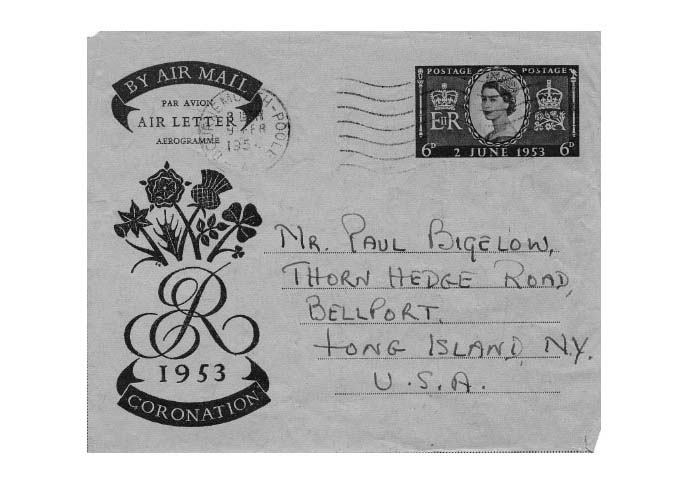 BY AIR MAIL
PAR AVION
AIR LETTER
AEROGRAMME
POSTAGE POSTAGE
EIIR
6D 2 JUNE 1953 6D
BOURNEMOUTH-POOLE
9 FEB
195
MR. PAUL BIGELOW,
THORN HEDGE ROAD,
BELLPORT.
LONG ISLAND, N.Y.
U.S.A.
ER
1953
CORONATION